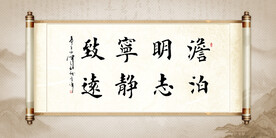 澹泊
明志
寧静
致遠